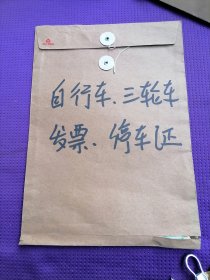 自行车、三轮车
发票、停车证